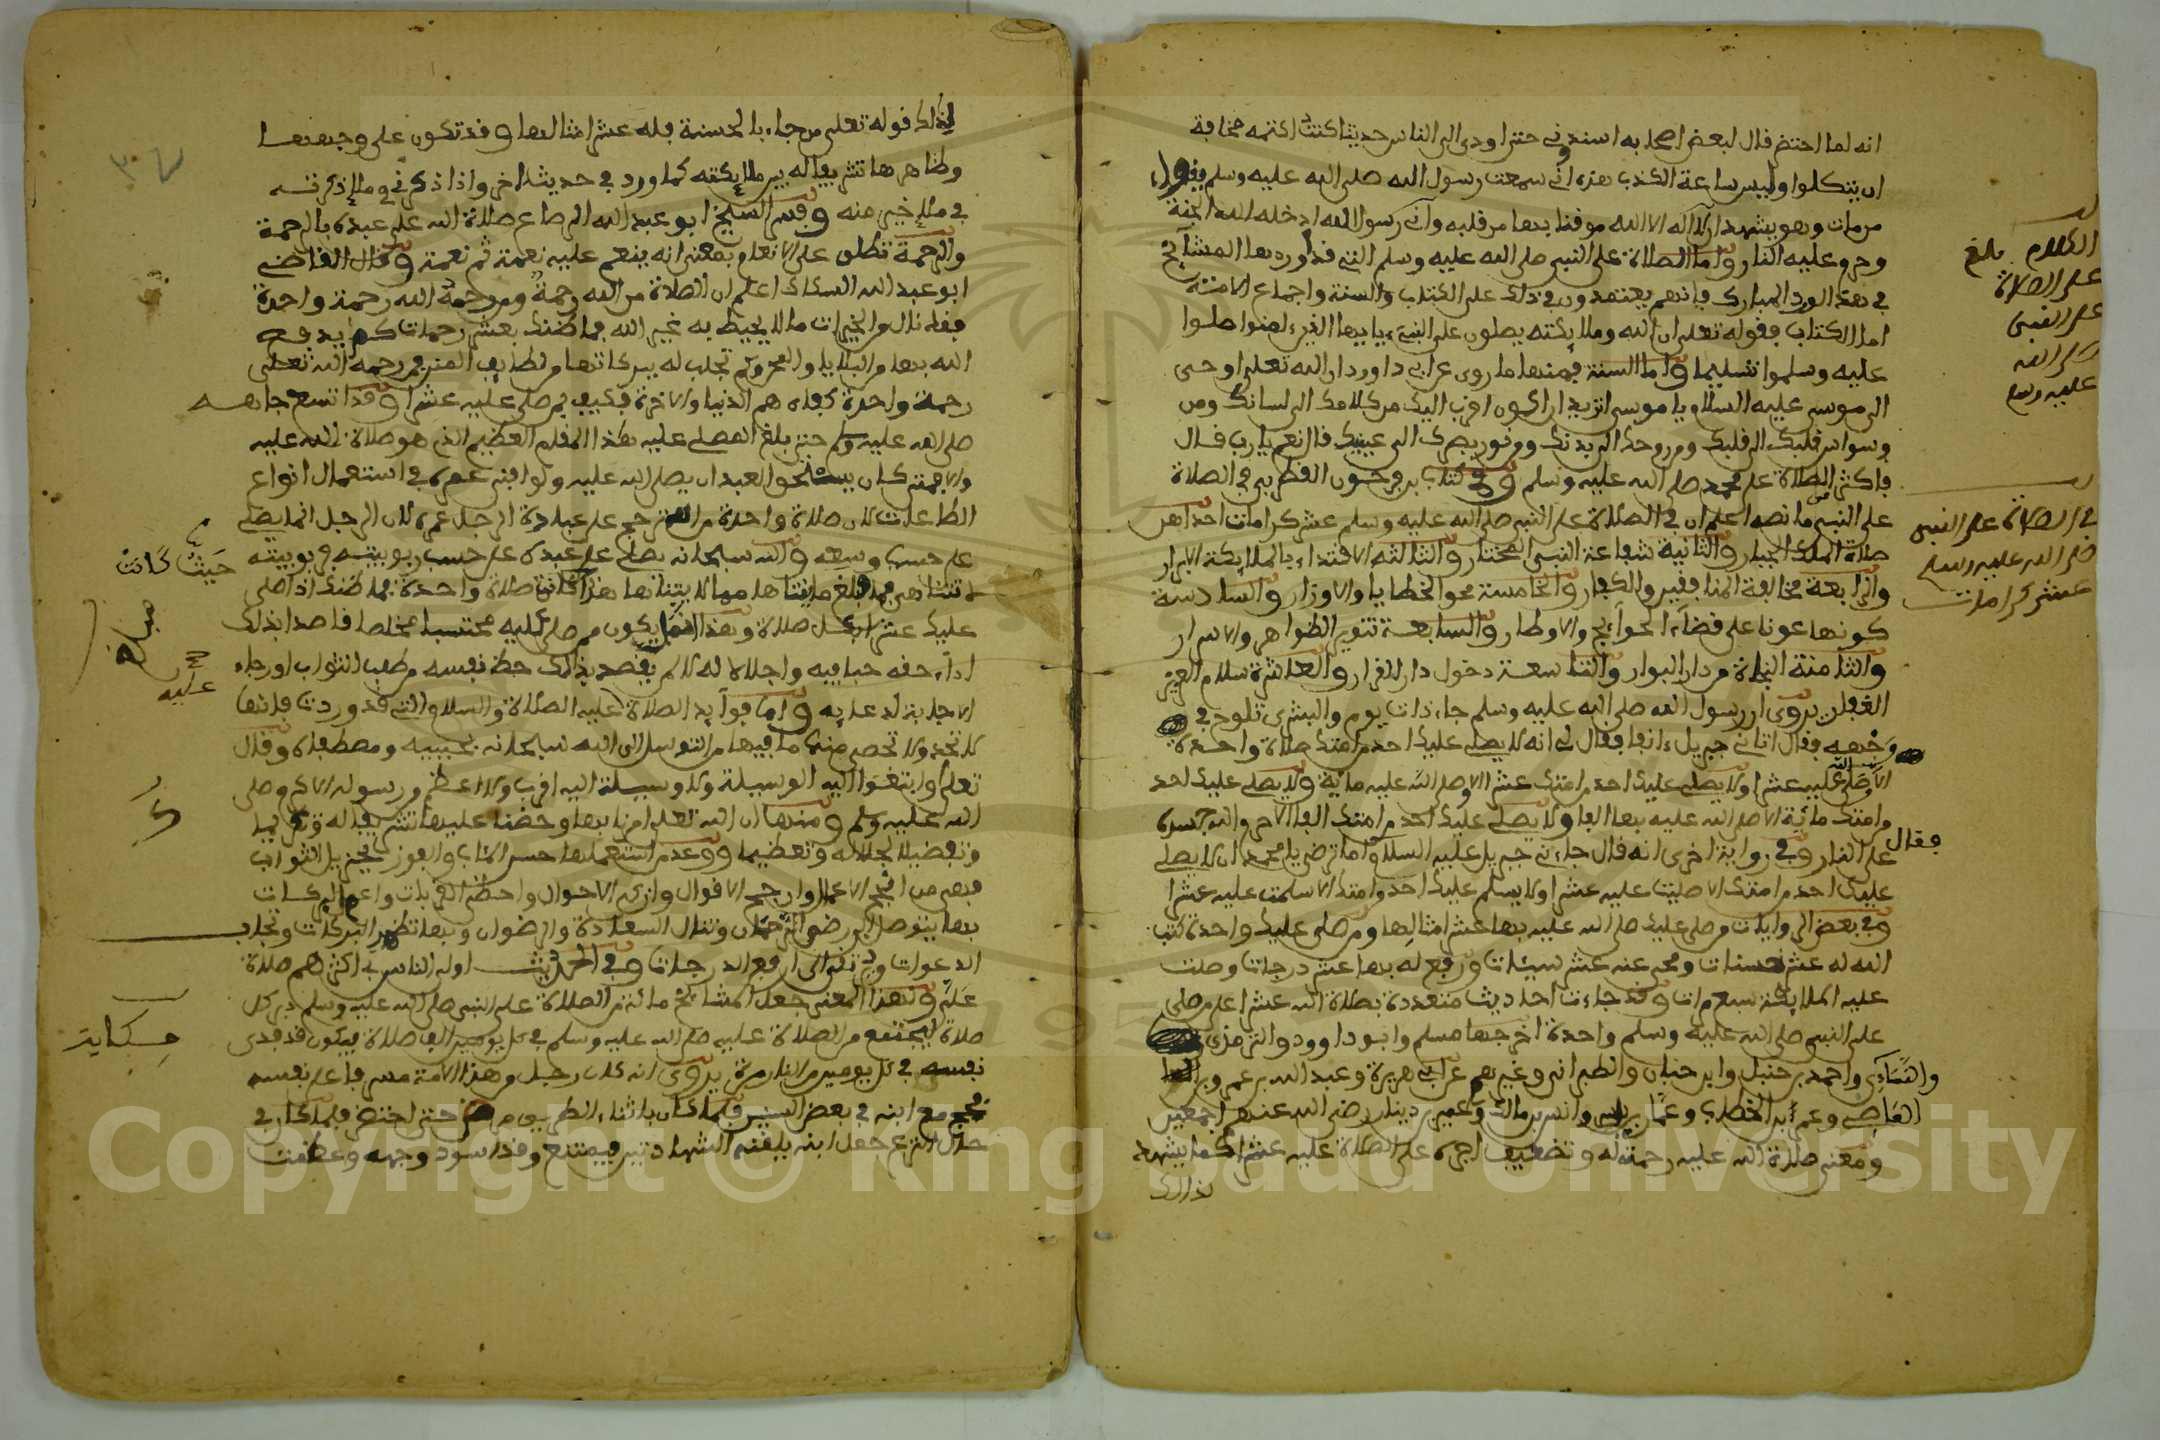 انه لما احتضر قال لبعض اصحابه اسندوني حتى اودي الى الناس حديثا كنت اكتمه مخافة
ان يتكلوا وليس ساعة الكذب هذه اني سمعت رسول الله صلى الله عليه وسلم يقول
من مات وهو يشهد ان لا اله الا الله موقنا بها من قلبه واني رسول الله ادخله الله الجنة
وحرم عليه النار واما الصلاة على النبي صلى الله عليه وسلم التي قد اوردها المشائخ
في هذا الورد المبارك فانهم يعتمدون في ذلك على الكتاب والسنة واجماع الامة
اما الكتاب فقوله تعلى ان الله وملائكته يصلون على النبيء يايها الذين ءامنوا صلوا
عليه وسلموا تسليما واما السنة فمنها ما روي عن ابي داود ان الله تعلى اوحى
الى موسى عليه السلام يا موسى اتريد ان اكون اقرب اليك من كلامك الى لسانك ومن
وسواس قلبك الى قلبك ومن روحك الى بدنك ومن نور بصرك الى عينيك قال نعم يا رب قال
فاكثر الصلاة على محمد صلى الله عليه وسلم وفي كتاب بن فرحون القرطبي في الصلاة
على النبي ما نصه اعلم ان في الصلاة على النبي صلى الله عليه وسلم عشر كرامات احداهن
صلاة الملك الجبار والثانية شفاعة النبي المختار والثالثة الاقتداء بالملائكة الابرار
والرابعة مخالفة المنافقين والكفار والخامسة محو الخطايا والاوزار والسادسة
كونها عونا على قضاء الحوائج والاوطار والسابعة تنوير الظواهر والاسرار
والثامنة النجاة من دار البوار والتاسعة دخول دار القرار والعاشرة سلام العزيز
الغفار روي ان رسول الله صلى الله عليه وسلم جاء ذات يوم والبشرى تلوح في
وجهه فقال اتاني جبريل ءانفا فقال لي انه لا يصلي عليك احد من امتك صلاة واحدة
الا صلى الله عليه عشرا ولا يصلي عليك احد من امتك عشرا الا وصلى الله عليه مائة ولا يصلي عليك احد
من امتك مائة الا صلى الله عليه بها الفا ولا يصلي عليك احد من امتك الفا الا حرم الله جسده
على النار وفي رواية اخرى انه قال جاءني جبريل عليه السلام فقال اما ترضى يا محمد ان لا يصلي
عليك احد من امتك الا صليت عليه عشرا ولا يسلم عليك احد من امتك الا سلمت عليه عشرا
وفي بعض الروايات من صلى عليك صلى الله عليه بها عشر امثالها ومن صلى عليك واحدة كتب
الله له عشر حسنات ومحى عنه عشر سيئات ورفع له بها عشر درجات وصلت
عليه الملائكة سبع مرات وقد جاءت احاديث متعددة بصلاة الله عشرا على من صلى
على النبي صلى الله عليه وسلم واحدة اخرجها مسلم وابو داوود والترمذي
والنسائي واحمد بن حنبل وابن حبان والطبراني وغيرهم عن ابي هريرة وعبد الله بن عمرو بن
العاصي وعمر بن الخطاب وعمار بن ياسر وانس بن مالك وعمير بن دينار رضي الله عنهم اجمعين
ومعنى صلاة الله عليه رحمته له وتضعيف اجره على الصلاة عليه عشرا كما يشهد
لذلك
بلغ
الكلام
على الصلاة
على النبي
صلى الله
عليه وسلم
في الصلاة على النبي
صلى الله عليه وسلم
عشر كرامات
فقال
لذلك قوله تعلى من جاء بالحسنة فله عشر امثالها وقد تكون على وجهها
وظاهرها تشريفا له بين ملائكته كما ورد في حديث اخر واذا ذكرني في ملإ ذكرته
في ملإ خير منه وفسر الشيخ ابو عبد الله الرصاع صلاة الله على عبده بالرحمة
والرحمة تطلق على الانعام بمعنى انه ينعم عليه نعمة ثم نعمة وقال القاضي
ابو عبد الله السكاك اعلم ان الصلاة من الله رحمة ومن رحمه الله رحمة واحدة
فقد نال من الخيرات ما لا يحيط به غير الله فما ظنك بعشر رحمات كم يدفع
الله بها من البلايا والمحن وكم تجلب له ببركاتها من لطائف المنن فمن رحمه الله تعلى
رحمة واحدة كفاه هم الدنيا والاخرة فكيف بمن صلى عليه عشرا وقد اتسع جاهه
صلى الله عليه وسلم حتى بلغ المصلي عليه هذا المقام العظيم الذي هو صلاة الله عليه
والا فمتى كان يستحق العبد ان يصلي الله عليه ولو افنى عمره في استعمال انواع
الطاعات لان صلاة واحدة من الله ترجح على عبادة الرجل عمره لان الرجل انما يصلي
على حسب وسعه والله سبحانه يصلي على عبده على حسب ربوبيته فربوبيته
لا تتناهى
عليك عشرا بكل صلاة وهذا انما يكون ممن صلى عليه محتسبا مخلصا قاصدا بذلك
اداء حقه حبا فيه واجلالا له لا من يقصد بذلك حظ نفسه من طلب الثواب او رجاء
الاجابة لدعائه واما فوائد الصلاة عليه الصلاة والسلام التي قد وردت فانها
لا تعد ولا تحصى منها ما فيها من التوسل الى الله سبحانه بحبيبه ومصطفاه وقال
تعلى وابتغوا اليه الوسيلة ولا وسيلة اليه اقرب ولا اعظم من رسوله الاكرم صلى
الله عليه وسلم ومنها ان الله تعلى امرنا بها وحضنا عليها تشريفا له وتكريما
وتفضيلا لجلاله وتعظيما ووعد من استعملها حسن المئاب والفوز بجزيل الثواب
فهي من انجح الاعمال وارجح الاقوال وازكى الاحوال واحظى القربات واعم البركات
بها يتوصل الى رضى الرحمان وتنال السعادة والرضوان وبها تظهر البركات وتجاب
الدعوات ويرتقى الى ارفع الدرجات وفي الحديث اولى الناس بي اكثرهم صلاة
علي ولهذا المعنى جعل المشائخ مائة من الصلاة على النبي صلى الله عليه وسلم دبر كل
صلاة ليجتمع من الصلاة عليه صلى الله عليه وسلم في كل يومين الف صلاة فيكون قد فدى
نفسه في كل يومين من النار مرة يروى ان كان رجل من هذا الامة مسرفا على نفسه
فحج مع ابنه في بعض السنين فلما كان باثناء الطريق مرض حتى احتضر فلما كان في
حال النزع جعل ابنه يلقنه الشهادتين فيمتنع وقد اسود وجهه وعظمت
حيث كانت
صلاة
عليه
حكاية